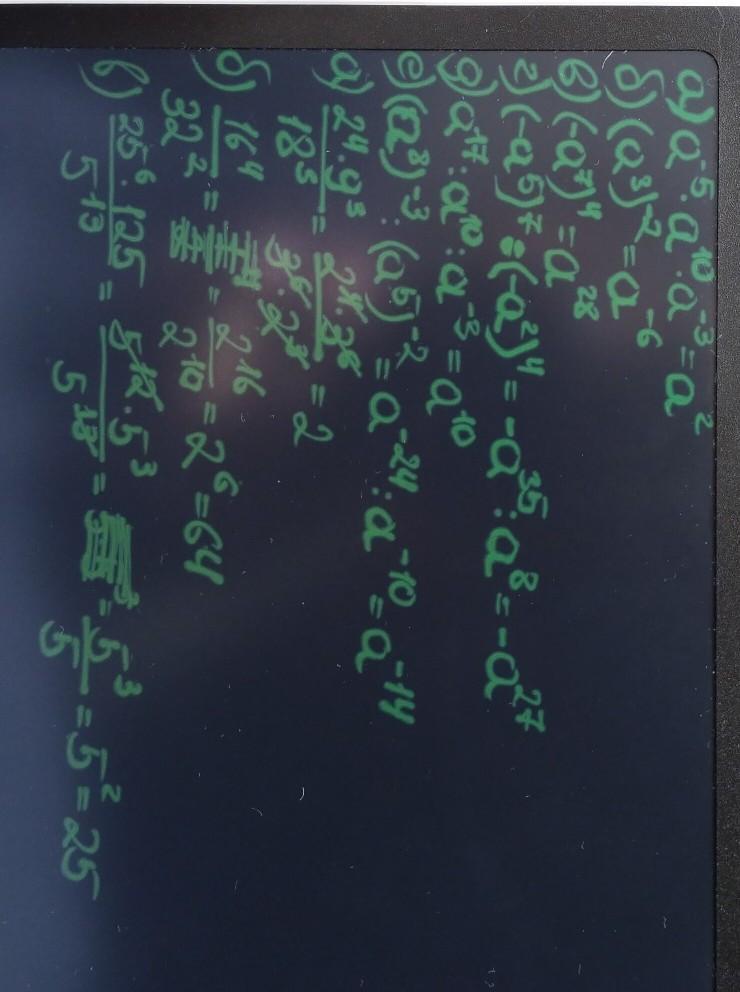 а) a⁻⁵ · a¹⁰ · a⁻³ = a²
б) (a³)⁻² = a⁻⁶
в) (-a⁷)⁴ = a²⁸
г) (-a⁵)⁷ : (-a²)⁴ = -a³⁵ : a⁸ = -a²⁷
д) a¹⁷ : a¹⁰ : a⁻³ = a¹⁰
е) (a⁸)⁻³ : (a⁵)⁻² = a⁻²⁴ : a⁻¹⁰ = a⁻¹⁴
а) 2⁴ · 9³ / 18³ = 2⁴ · 3⁶ / 3⁶ · 2³ = 2
б) 16⁴ / 32² = = 2¹⁶ / 2¹⁰ = 2⁶ = 64
в) 25⁻⁶ · 125 / 5⁻¹³ = 5⁻¹² · 5³ / 5⁻¹³ = = 5³ / 5 = 5² = 25